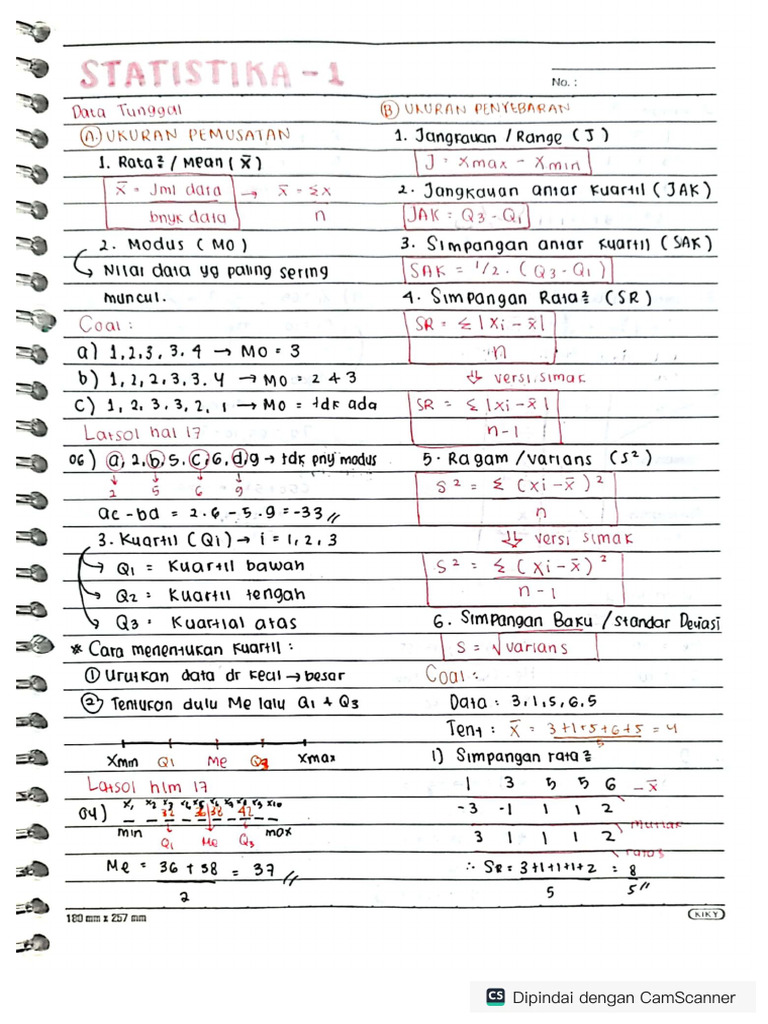 STATISTIKA - 1
No. :
Data Tunggal
(A) UKURAN PEMUSATAN
1. Rata² / Mean ( x̄ )
x̄ = Jml data → x̄ = Σx
bnyk data n
2. Modus ( MO )
↳ Nilai data yg paling sering
muncul.
Coal :
a) 1, 2, 3, 3, 4 → MO = 3
b) 1, 2, 2, 3, 3, 4 → MO = 2 & 3
c) 1, 2, 3, 3, 2, 1 → MO = tdk ada
Latsol hal 17
06) a, 2, b, 5, c, 6, d, 9 → tdk pny modus
2 5 6 9
ac - bd = 2.6 - 5.9 = -33 //
3. Kuartil ( Qi ) → i = 1, 2, 3
→ Q1 = Kuartil bawah
→ Q2 = Kuartil tengah
→ Q3 = Kuartial atas
* Cara menentukan kuartil :
① Urutkan data dr kecil → besar
② Tentukan dulu Me lalu Q1 & Q3
Xmin Q1 Me Q3 Xmax
Latsol hlm 17
x1 x2 x3 x4 x5 x6 x7 x8 x9 x10
04) 32 36 38 42
min Q1 Me Q3 max
Me = 36 + 38 = 37 //
2
(B) UKURAN PENYEBARAN
1. Jangkauan / Range ( J )
J = Xmax - Xmin
2. Jangkauan antar Kuartil ( JAK )
JAK = Q3 - Q1
3. Simpangan antar kuartil ( SAK )
SAK = 1/2 . ( Q3 - Q1 )
4. Simpangan Rata² ( SR )
SR = Σ | Xi - x̄ |
n
⇓ versi simak
SR = Σ |xi - x̄ |
n-1
5. Ragam / varians ( S² )
S² = Σ (xi - x̄ )²
n
⇓ versi simak
S² = Σ ( Xi - x̄ )²
n-1
6. Simpangan Baku / Standar Deviasi
S = √varians
Coal :
Data : 3, 1, 5, 6, 5
Tent : x̄ = 3+1+5+6+5 = 4
5
1) Simpangan rata²
1 3 5 5 6 - x̄
-3 -1 1 1 2
mutlak
3 1 1 1 2
∴ SR = 3+1+1+1+2 = 8
5 5 //
180 mm x 257 mm
KIKY
CS Dipindai dengan CamScanner